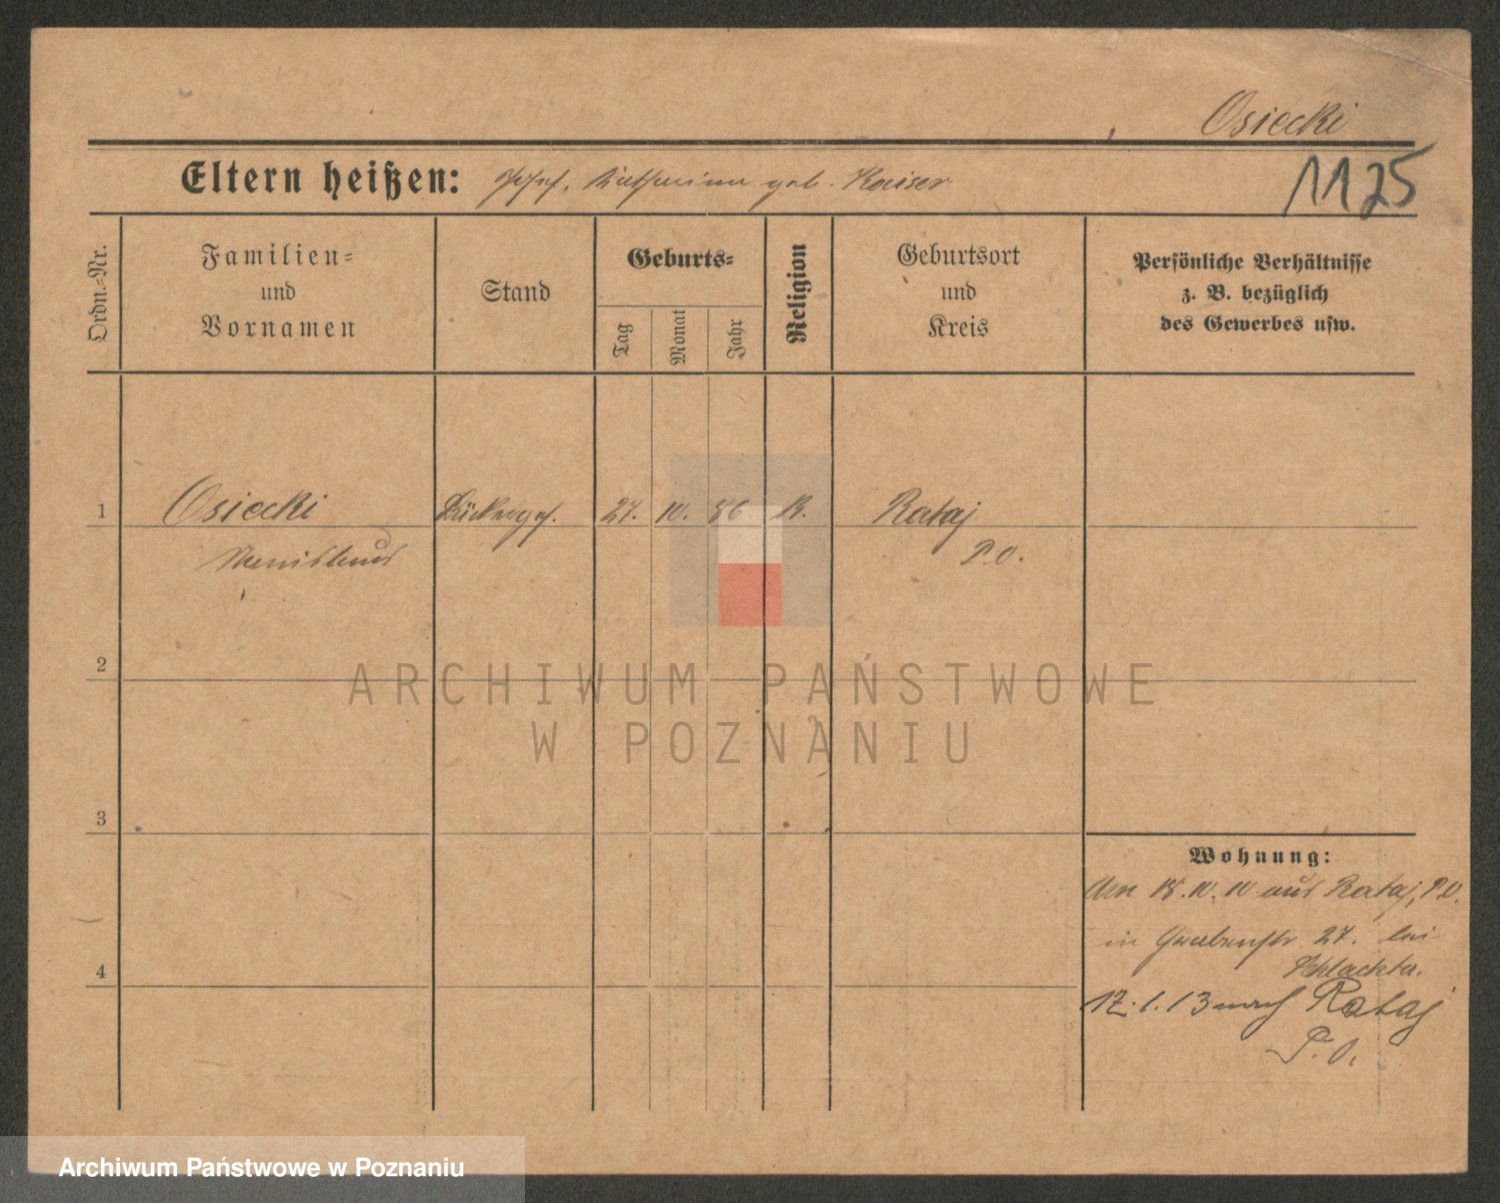 Osiecki
Eltern heißen: Josef, Katharina geb. Kaiser
1125
Ordn.-Nr.
Familien-
und
Vornamen
Stand
Geburts-
Tag
Monat
Jahr
Religion
Geburtsort
und
Kreis
Persönliche Verhältnisse
z. B. bezüglich
des Gewerbes usw.
1 Osiecki 27. 10. 86 K. Rataj
P.O.
2
ARCHIWUM PAŃSTWOWE
W POZNANIU
3
Wohnung:
Am 18.10.10 aus Rataj, P.O.
in Grabenstr. 27. bei
4
12.1.13 nach Rataj
P.O.
Archiwum Państwowe w Poznaniu